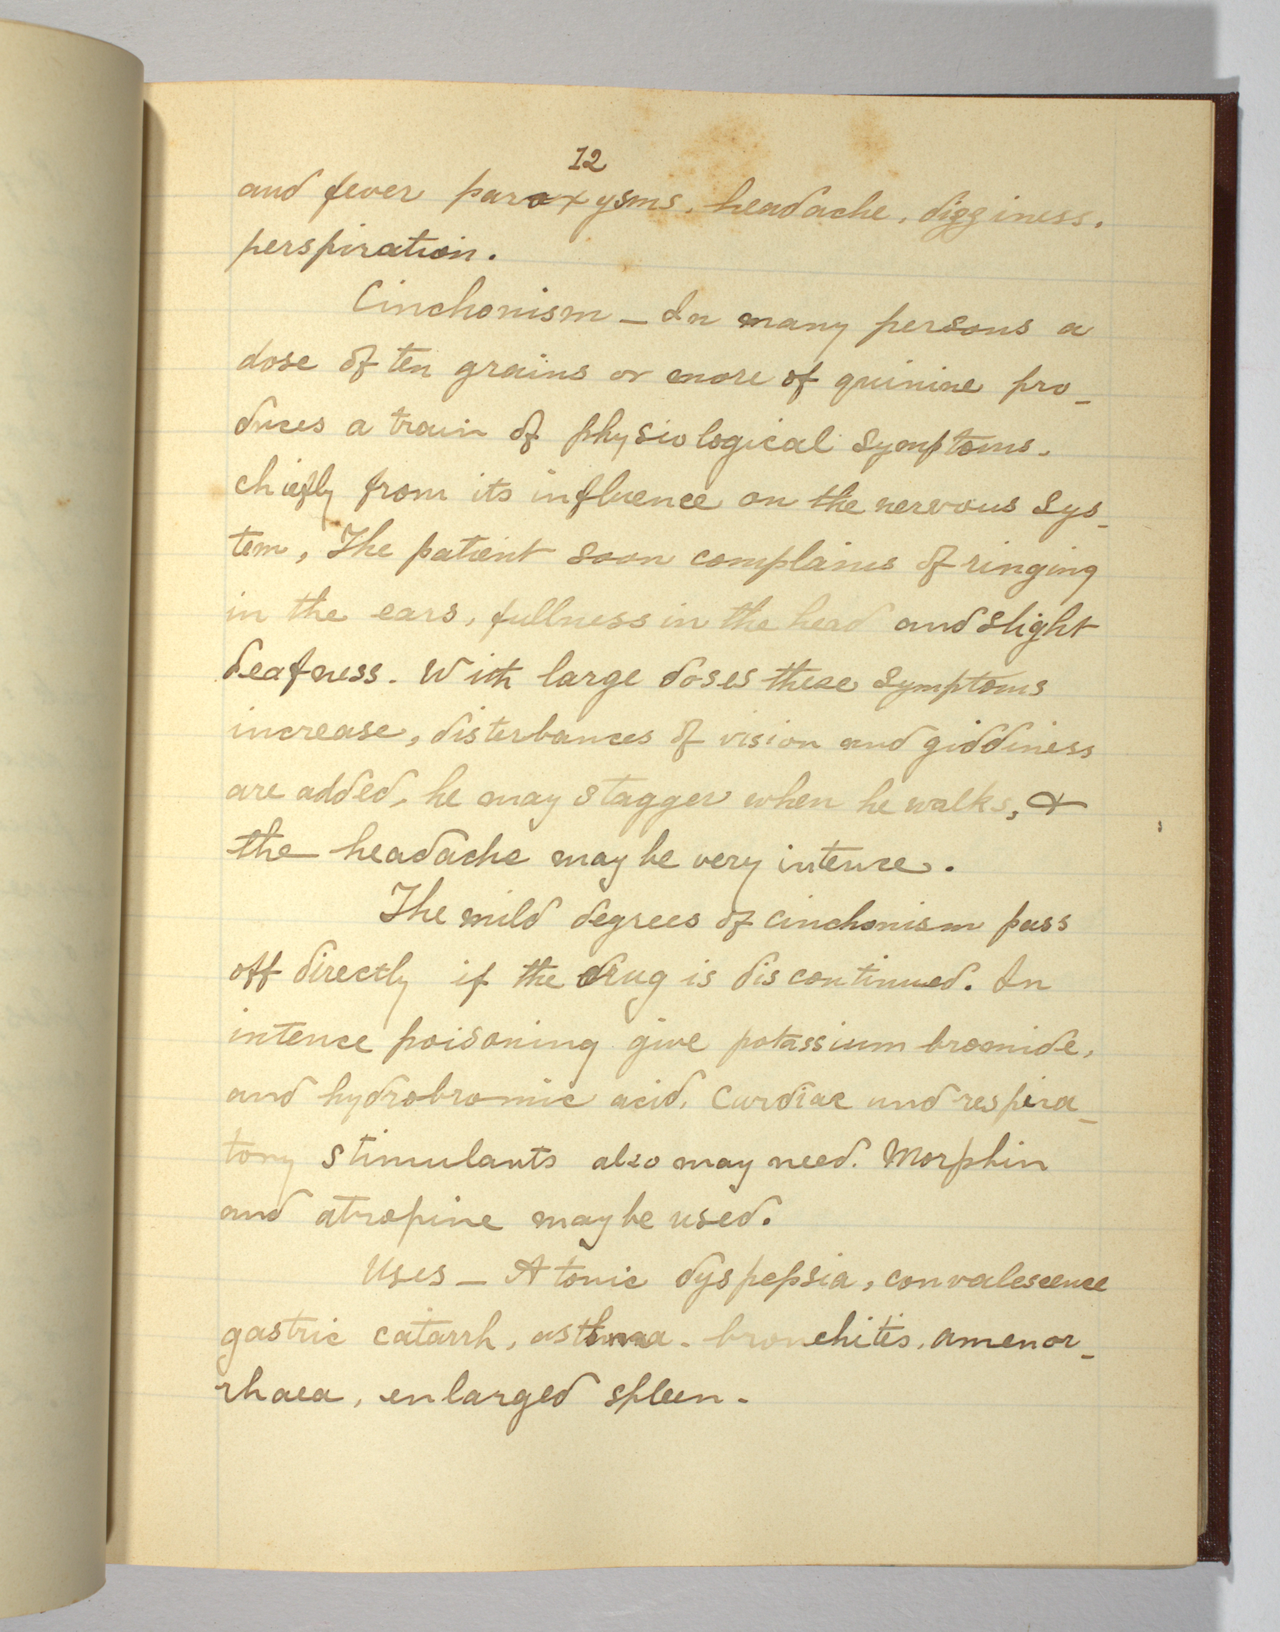 12
and fever paroxysms, headache, dizziness,
perspiration.
Cinchonism _ In many persons a
dose of ten grains or more of quinine pro_
duces a train of physiological symptoms,
chiefly from its influence on the nervous sys_
tem, The patient soon complains of ringing
in the ears, fullness in the head and slight
deafness. With large doses these symptoms
increase, disterbances of vision and giddiness
are added, he may stagger when he walks, &
the headache may be very intence.
The mild degrees of cinchonism pass
off directly if the drug is discontinued. In
intence poisoning give potassium bromide,
and hydrobromic acid, Cardiac and respira_
tory stimulants also may need. Morphin
and atropine may be used.
Uses _ Atonic dyspepsia, convalescence
gastric catarrh, asthma, bronchitis, amenor_
rhaea, enlarged spleen.